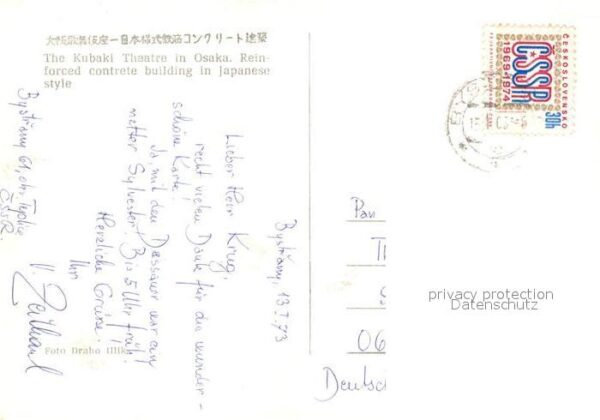 大阪歌舞伎座ー日本様式鉄筋コンクリート建築
The Kubaki Theatre in Osaka. Rein-
forced contrete building in Japanese
style
Bystřany, 13.I.
Lieber Herr Krug,
recht vielen Dank für die wunder-
schöne Karte!
Ja mit den Dessauer war ein
netter Sylvester! Bis 5 Uhr früh!
Herzliche Grüsse
Ihr
V.
Bystřany 61, okr. Teplice
ČSSR.
Foto Draho
ČESKOSLOVENSKO
ČSSR
1969-1974
30h
Pan
06
Deutsch
privacy protection
Datenschutz